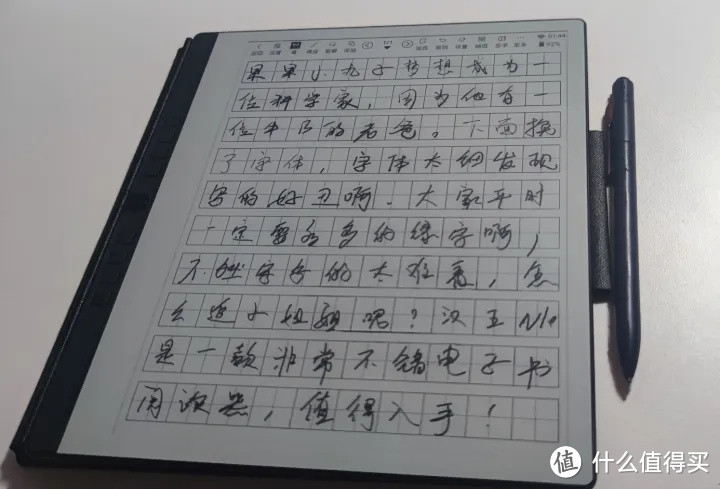 果果小九子梦想成为一
位科学家，因为他有一
位牛B的老爸。下面换
了字体，字体太细发现
写的好丑啊．大家平时
一定要多多的练字啊，
不然字写的太难看，怎
么追小姐姐呢？汉王N10
是一款非常不错电子书
阅读器，值得入手！
值 什么值得买